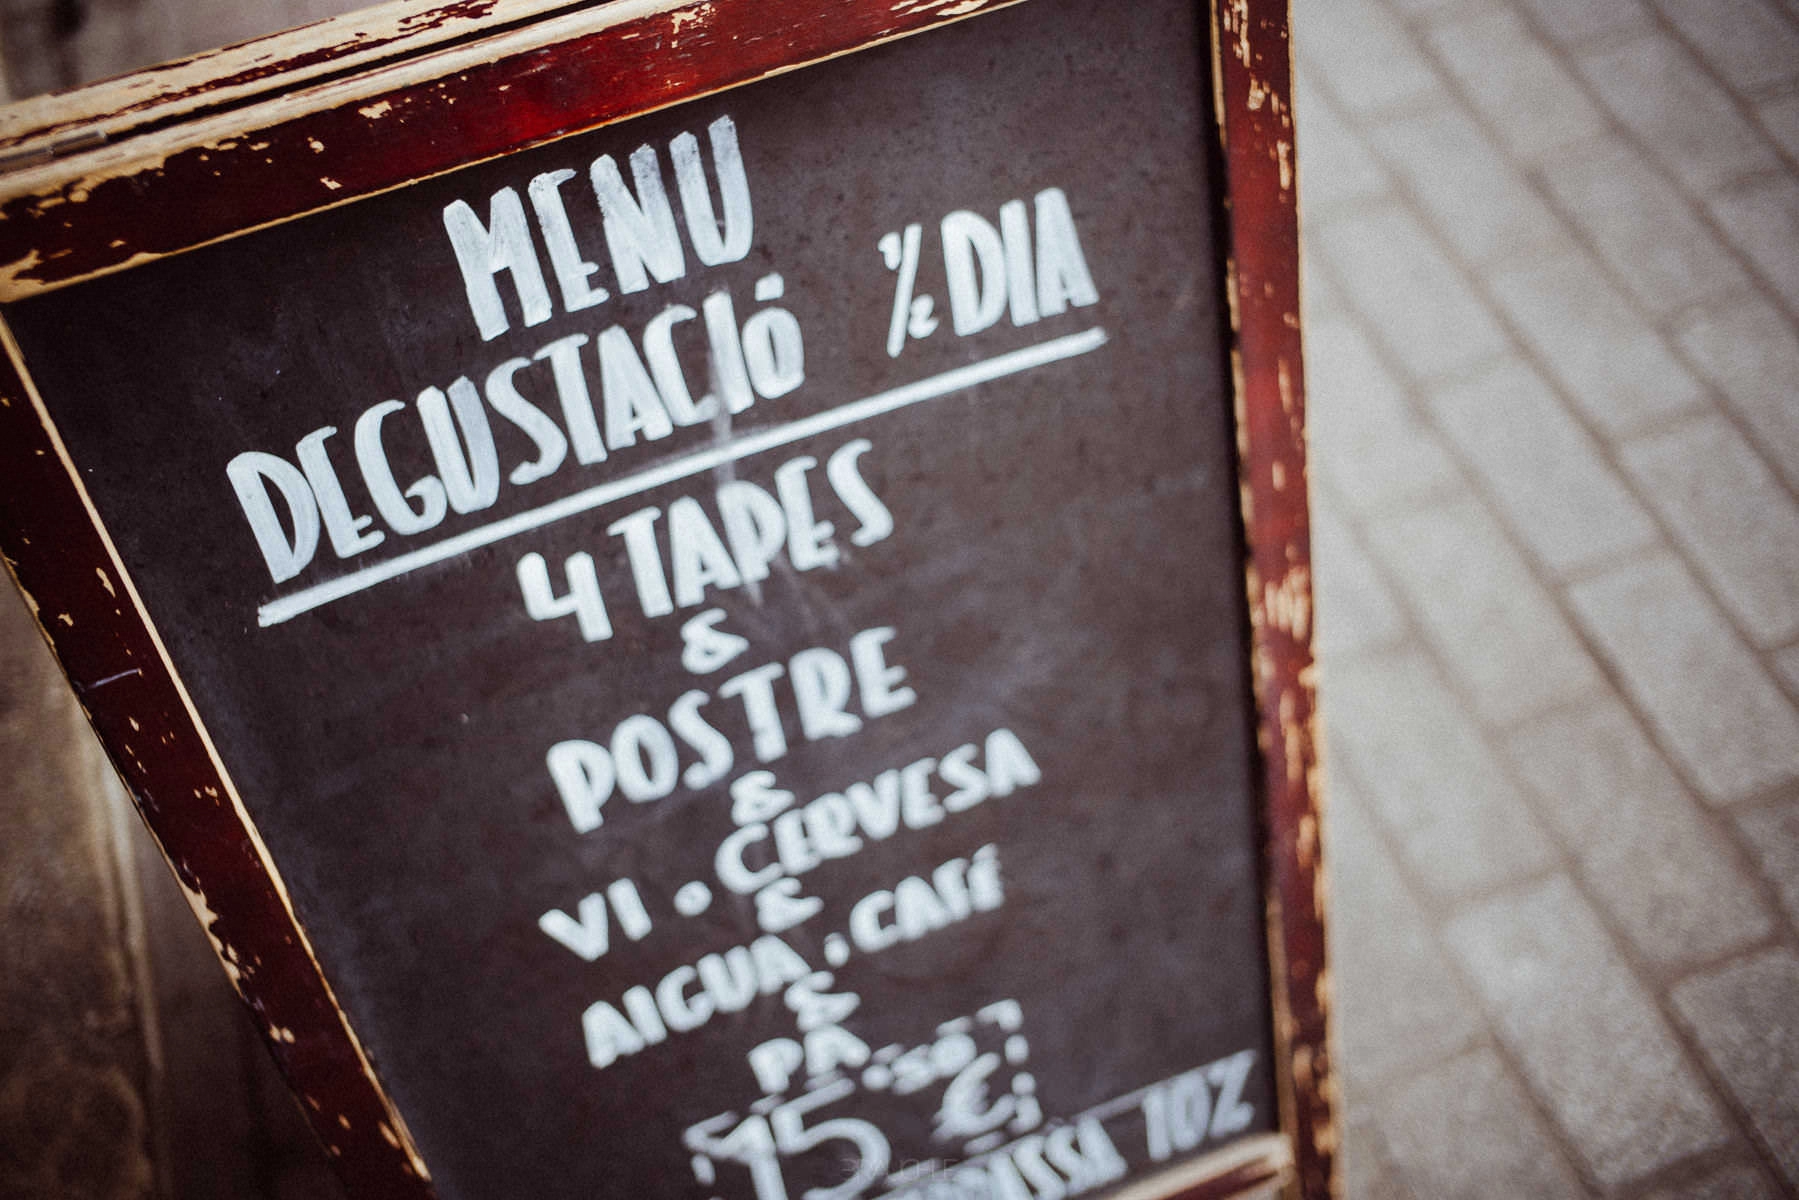 MENU
DEGUSTACIÓ ½ DIA
4 TAPES
&
POSTRE
&
VI o CERVESA
&
AIGUA i CAFÉ
&
PA
15.50 €
10%